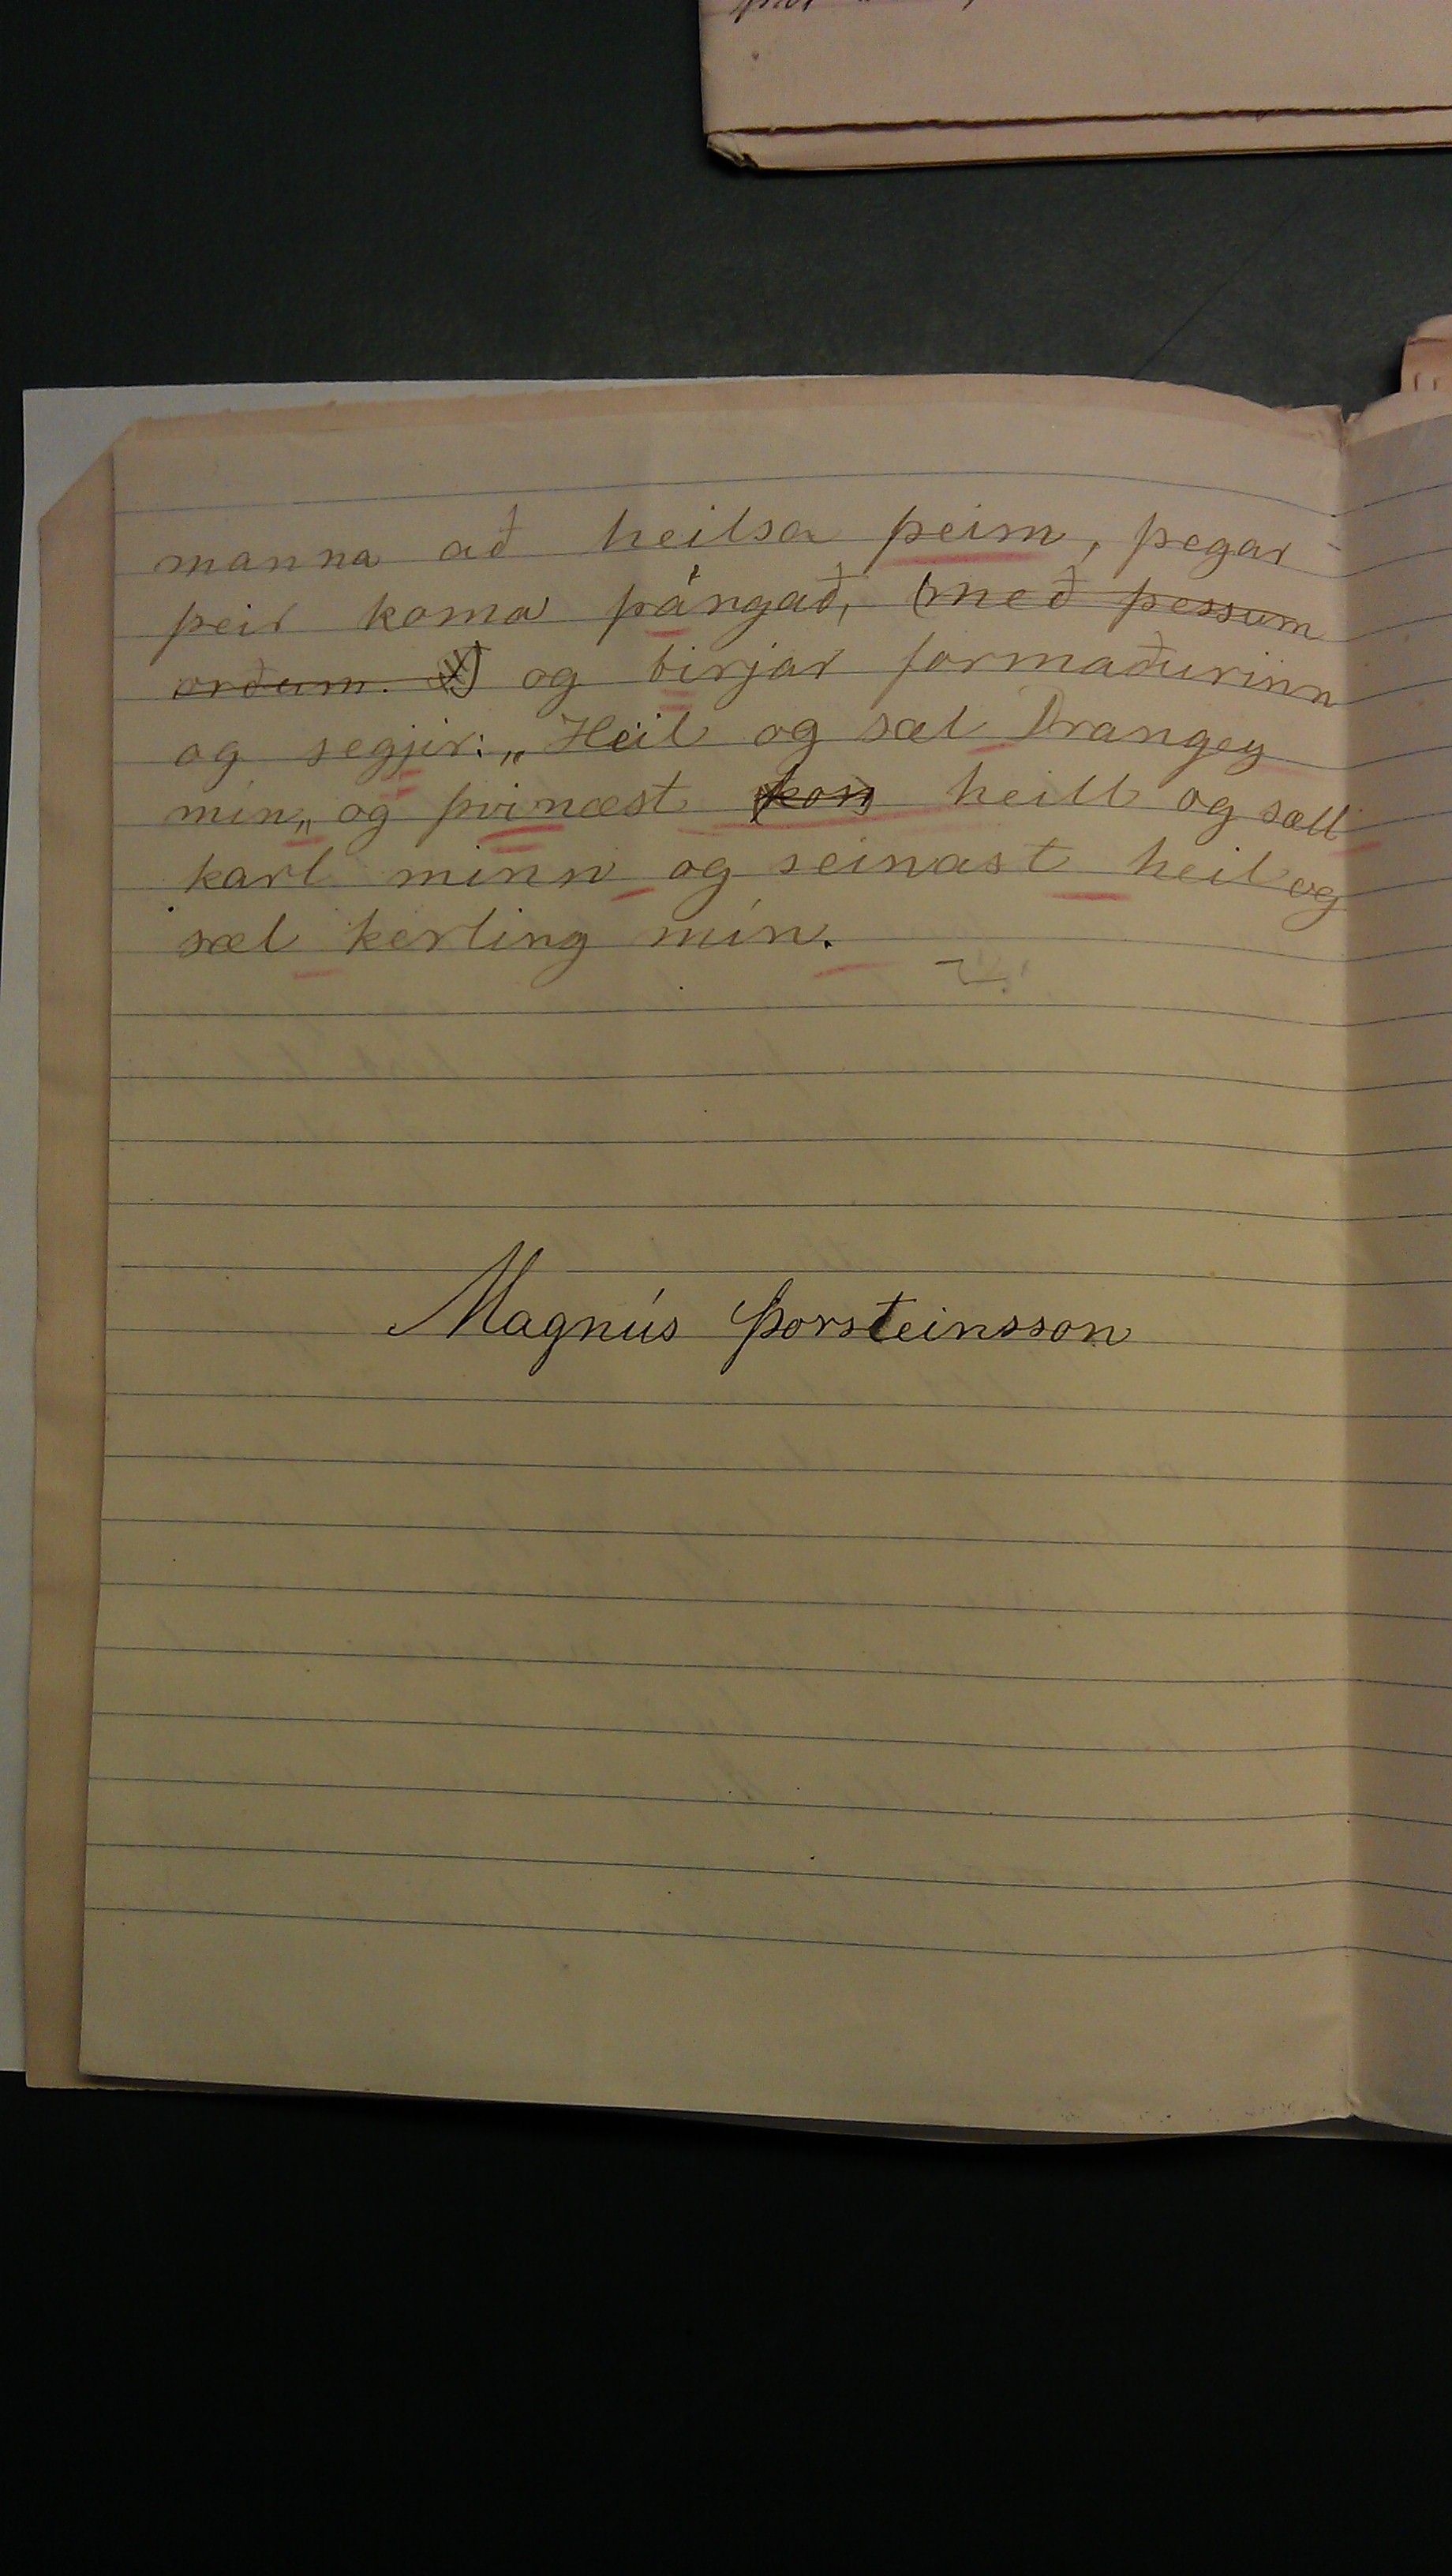 manna að heilsa þeim, þegar
þeir koma þángað, (með þessum
orðum. og birjar formaðurinn
og segjir: „Heil og sæl Drangey
mín„ og þvinæst kon heill og sæll
karl minn og seinast heil og
sæl kerling mín.
Magnús Þorsteinsson